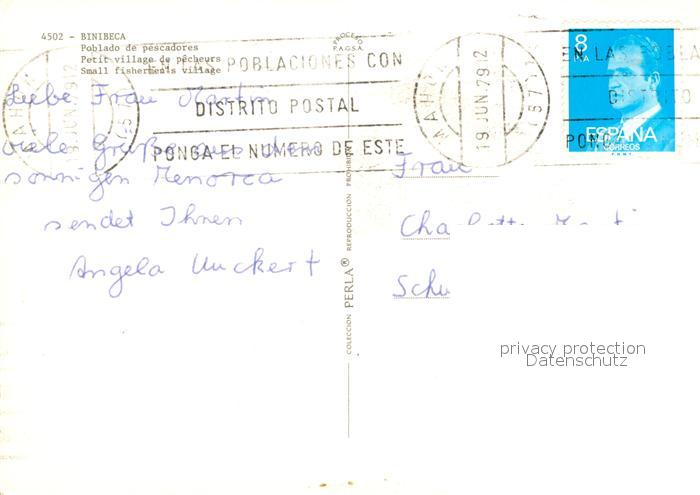 4502 - BINIBECA
Poblado de pescadores
Petit village de pêcheurs
Small fishermen's village
PROCESO
P.A.G.S.A.
POBLACIONES CON
DISTRITO POSTAL
PONGA EL NUMERO DE ESTE
MAHON
19 JUN.79 12
(571)
EN LAS POBLA
DISTRITO
PONGA
8
PTA
ESPAÑA
CORREOS
Liebe Frau Martin
viele Grüße aus dem
sonnigen Menorca
sendet Ihnen
Angela Unckert
Frau
Cha
Schu
COLECCION PERLA® REPRODUCCION PROHIBIDA
privacy protection
Datenschutz